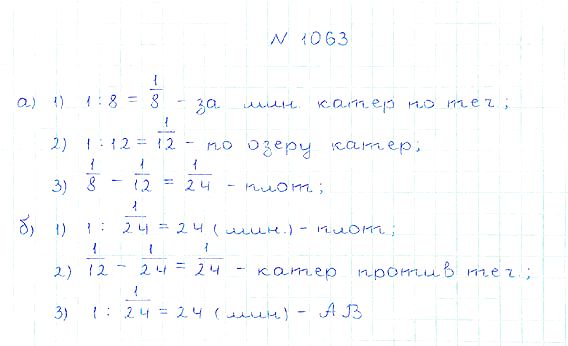 N 1063
а) 1) 1 : 8 = 1/8 - за мин. катер по теч.;
2) 1 : 12 = 1/12 - по озеру катер;
3) 1/8 - 1/12 = 1/24 - плот;
б) 1) 1 : 1/24 = 24 (мин.) - плот;
2) 1/12 - 1/24 = 1/24 - катер против теч.;
3) 1 : 1/24 = 24 (мин) - АВ